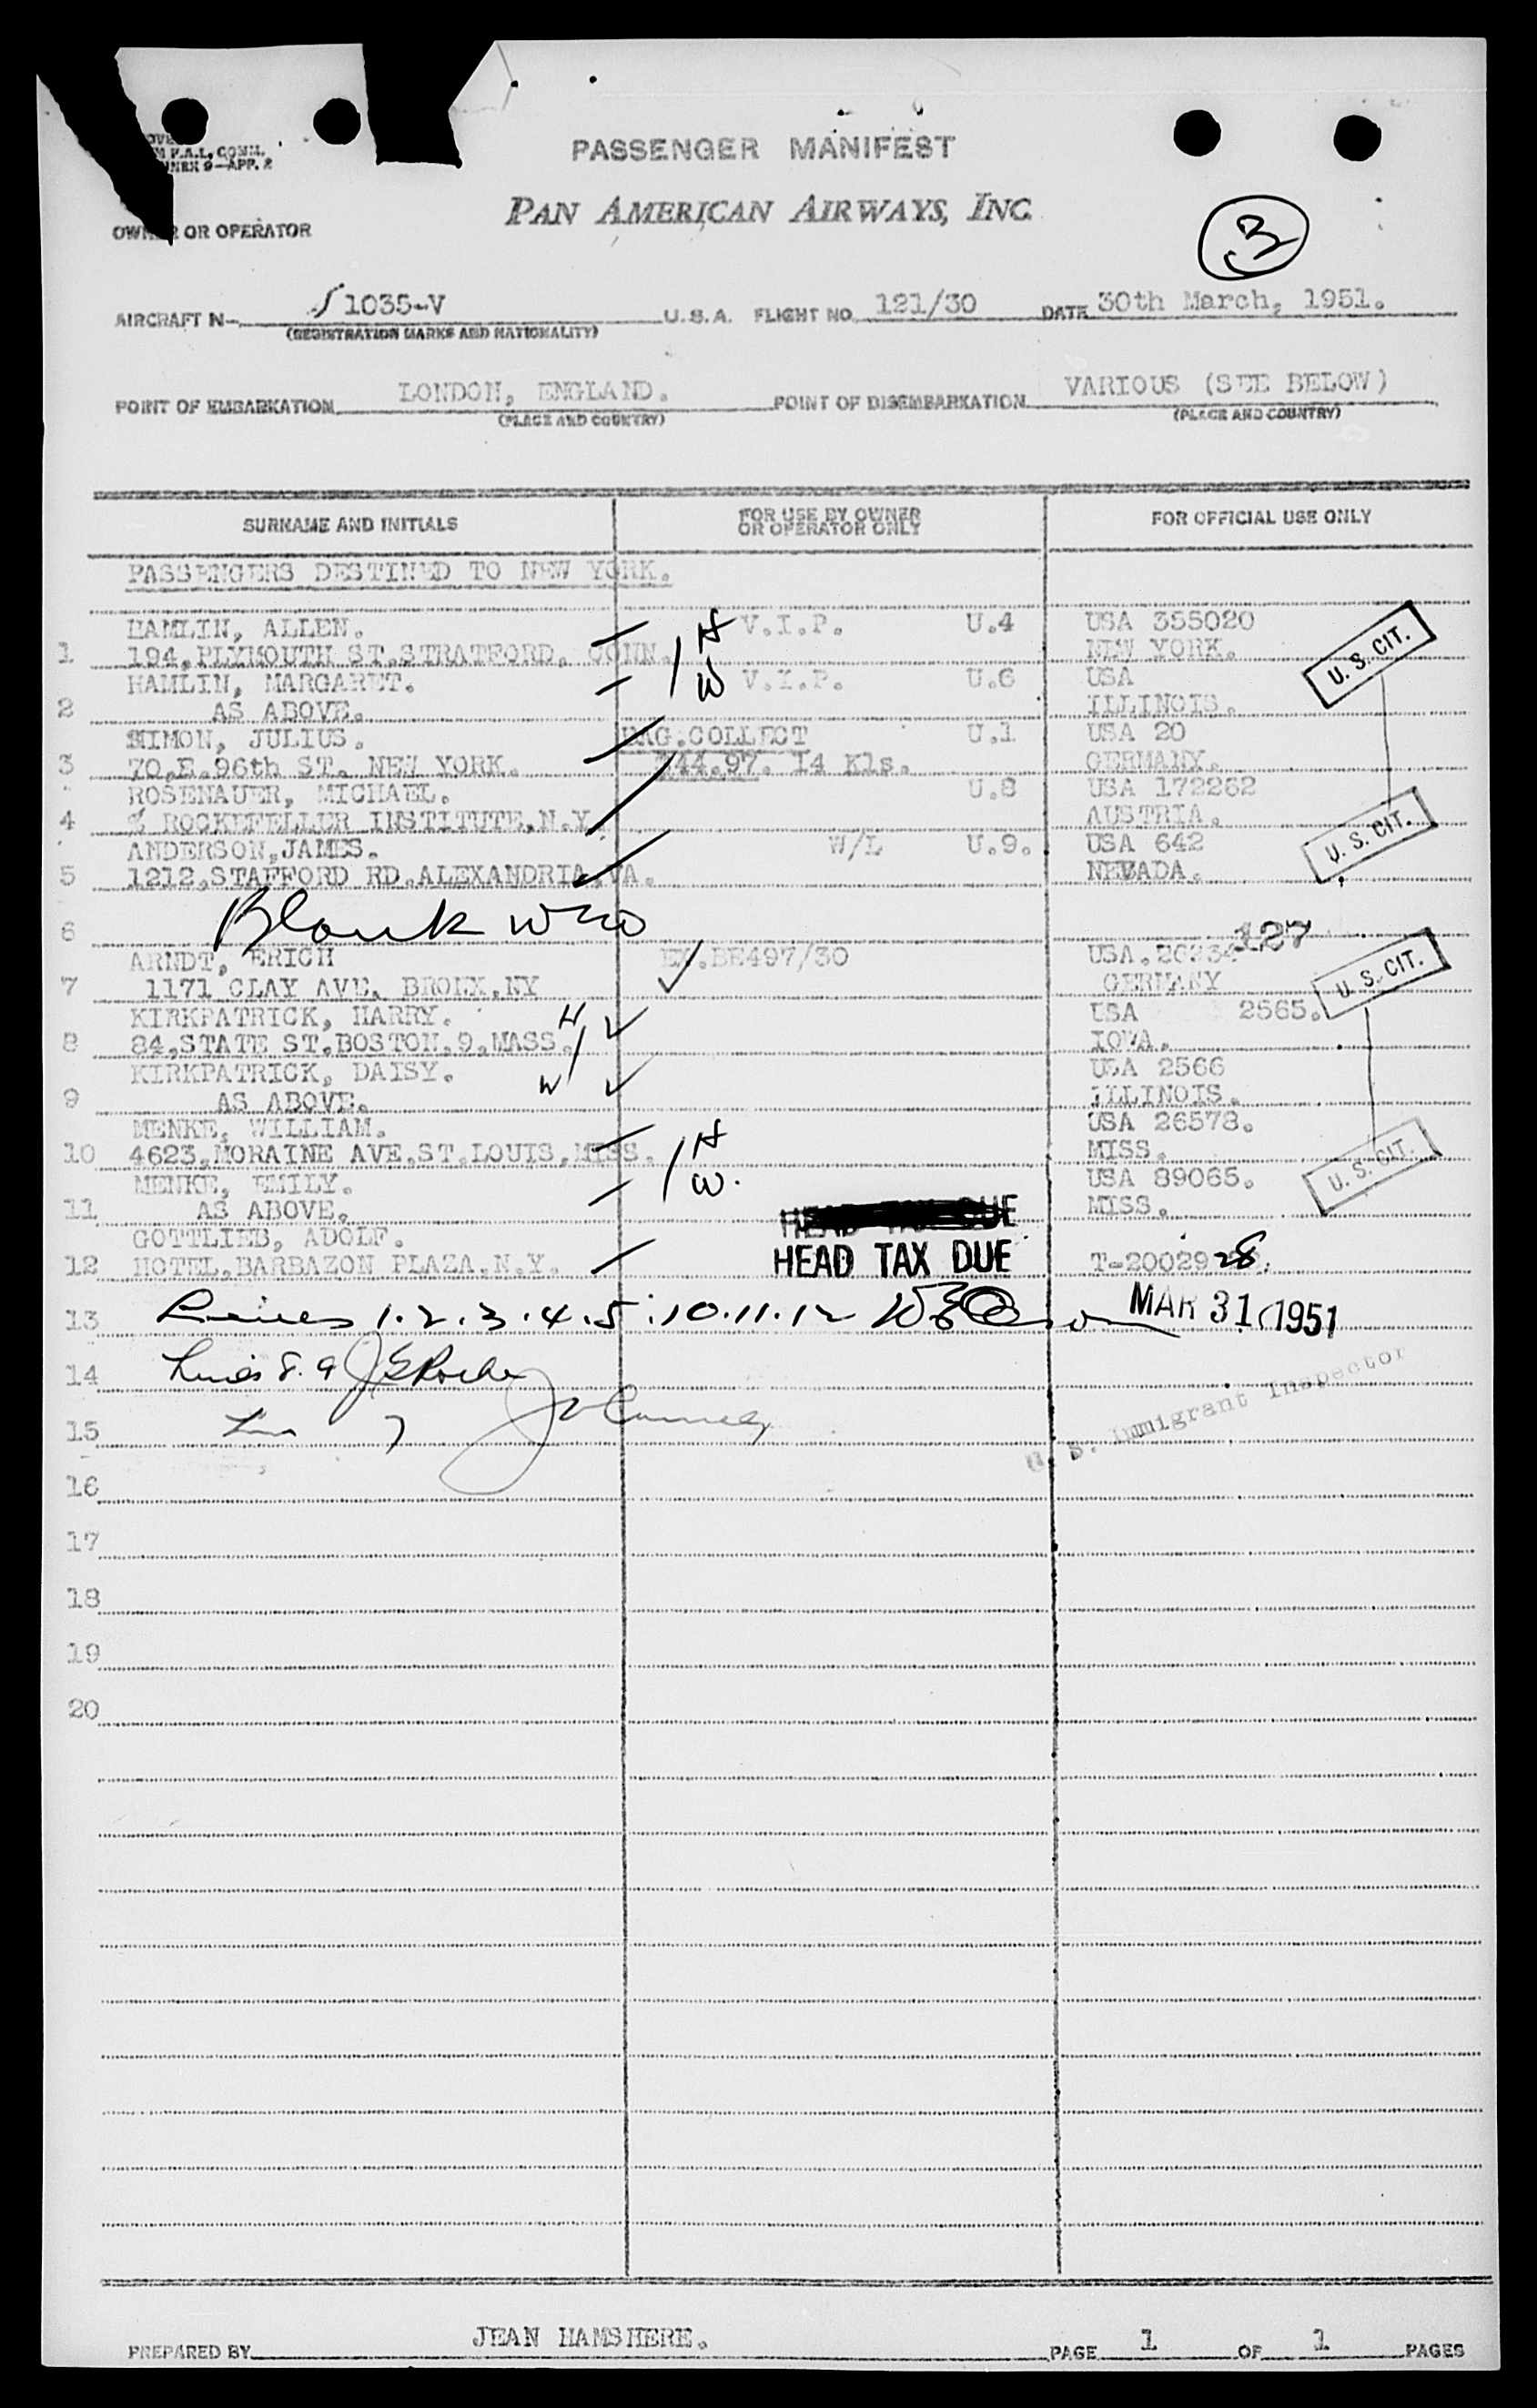 M F.A.L. CONM.
ANNEX 9—APP. 2
PASSENGER MANIFEST
PAN AMERICAN AIRWAYS, INC.
3
OWNER OR OPERATOR
AIRCRAFT N- 1035-V U.S.A. FLIGHT NO. 121/30 DATE 30th March, 1951.
(REGISTRATION MARKS AND NATIONALITY)
POINT OF EMBARKATION LONDON, ENGLAND. POINT OF DISEMBARKATION VARIOUS (SEE BELOW)
(PLACE AND COUNTRY) (PLACE AND COUNTRY)
SURNAME AND INITIALS FOR USE BY OWNER OR OPERATOR ONLY FOR OFFICIAL USE ONLY
PASSENGERS DESTINED TO NEW YORK.
HAMLIN, ALLEN. H V.I.P. U.4 USA 355020
1 194,PLYMOUTH ST.STRATFORD, CONN. NEW YORK. U. S. CIT.
HAMLIN, MARGARET. W V.I.P. U.6 USA
2 AS ABOVE. ILLINOIS.
SIMON, JULIUS. BAG.COLLECT U.1 USA 20
3 70,E.96th ST. NEW YORK. 44.97. 14 Kls. GERMANY.
ROSENAUER, MICHAEL. U.8 USA 172262
4 % ROCKEFELLER INSTITUTE,N.Y. AUSTRIA.
ANDERSON,JAMES. W/L U.9. USA 642 U. S. CIT.
5 1212,STAFFORD RD.ALEXANDRIA,VA. NEVADA.
6 Blank
127
ARNDT, ERICH EX.BE497/30 USA.
7 1171 CLAY AVE. BRONX,NY GERMANY U. S. CIT.
KIRKPATRICK, HARRY. H USA 2565.
8 84,STATE ST.BOSTON.9,MASS. IOWA.
KIRKPATRICK, DAISY. W USA 2566
9 AS ABOVE. ILLINOIS.
MENKE, WILLIAM. H USA 26578.
10 4623,MORAINE AVE,ST.LOUIS,MISS. MISS.
MENKE, EMILY. W. USA 89065. U. S. CIT.
11 AS ABOVE. MISS.
HEAD TAX DUE
GOTTLIEB, ADOLF.
12 HOTEL,BARBAZON PLAZA.N.Y. HEAD TAX DUE T-20029 28
13 Lines 1.2.3.4.5.10.11.12 MAR 31 1951
14 Lines 8.9
U. S. Immigrant Inspector
15 7
16
17
18
19
20
PREPARED BY JEAN HAMSHERE. PAGE 1 OF 1 PAGES